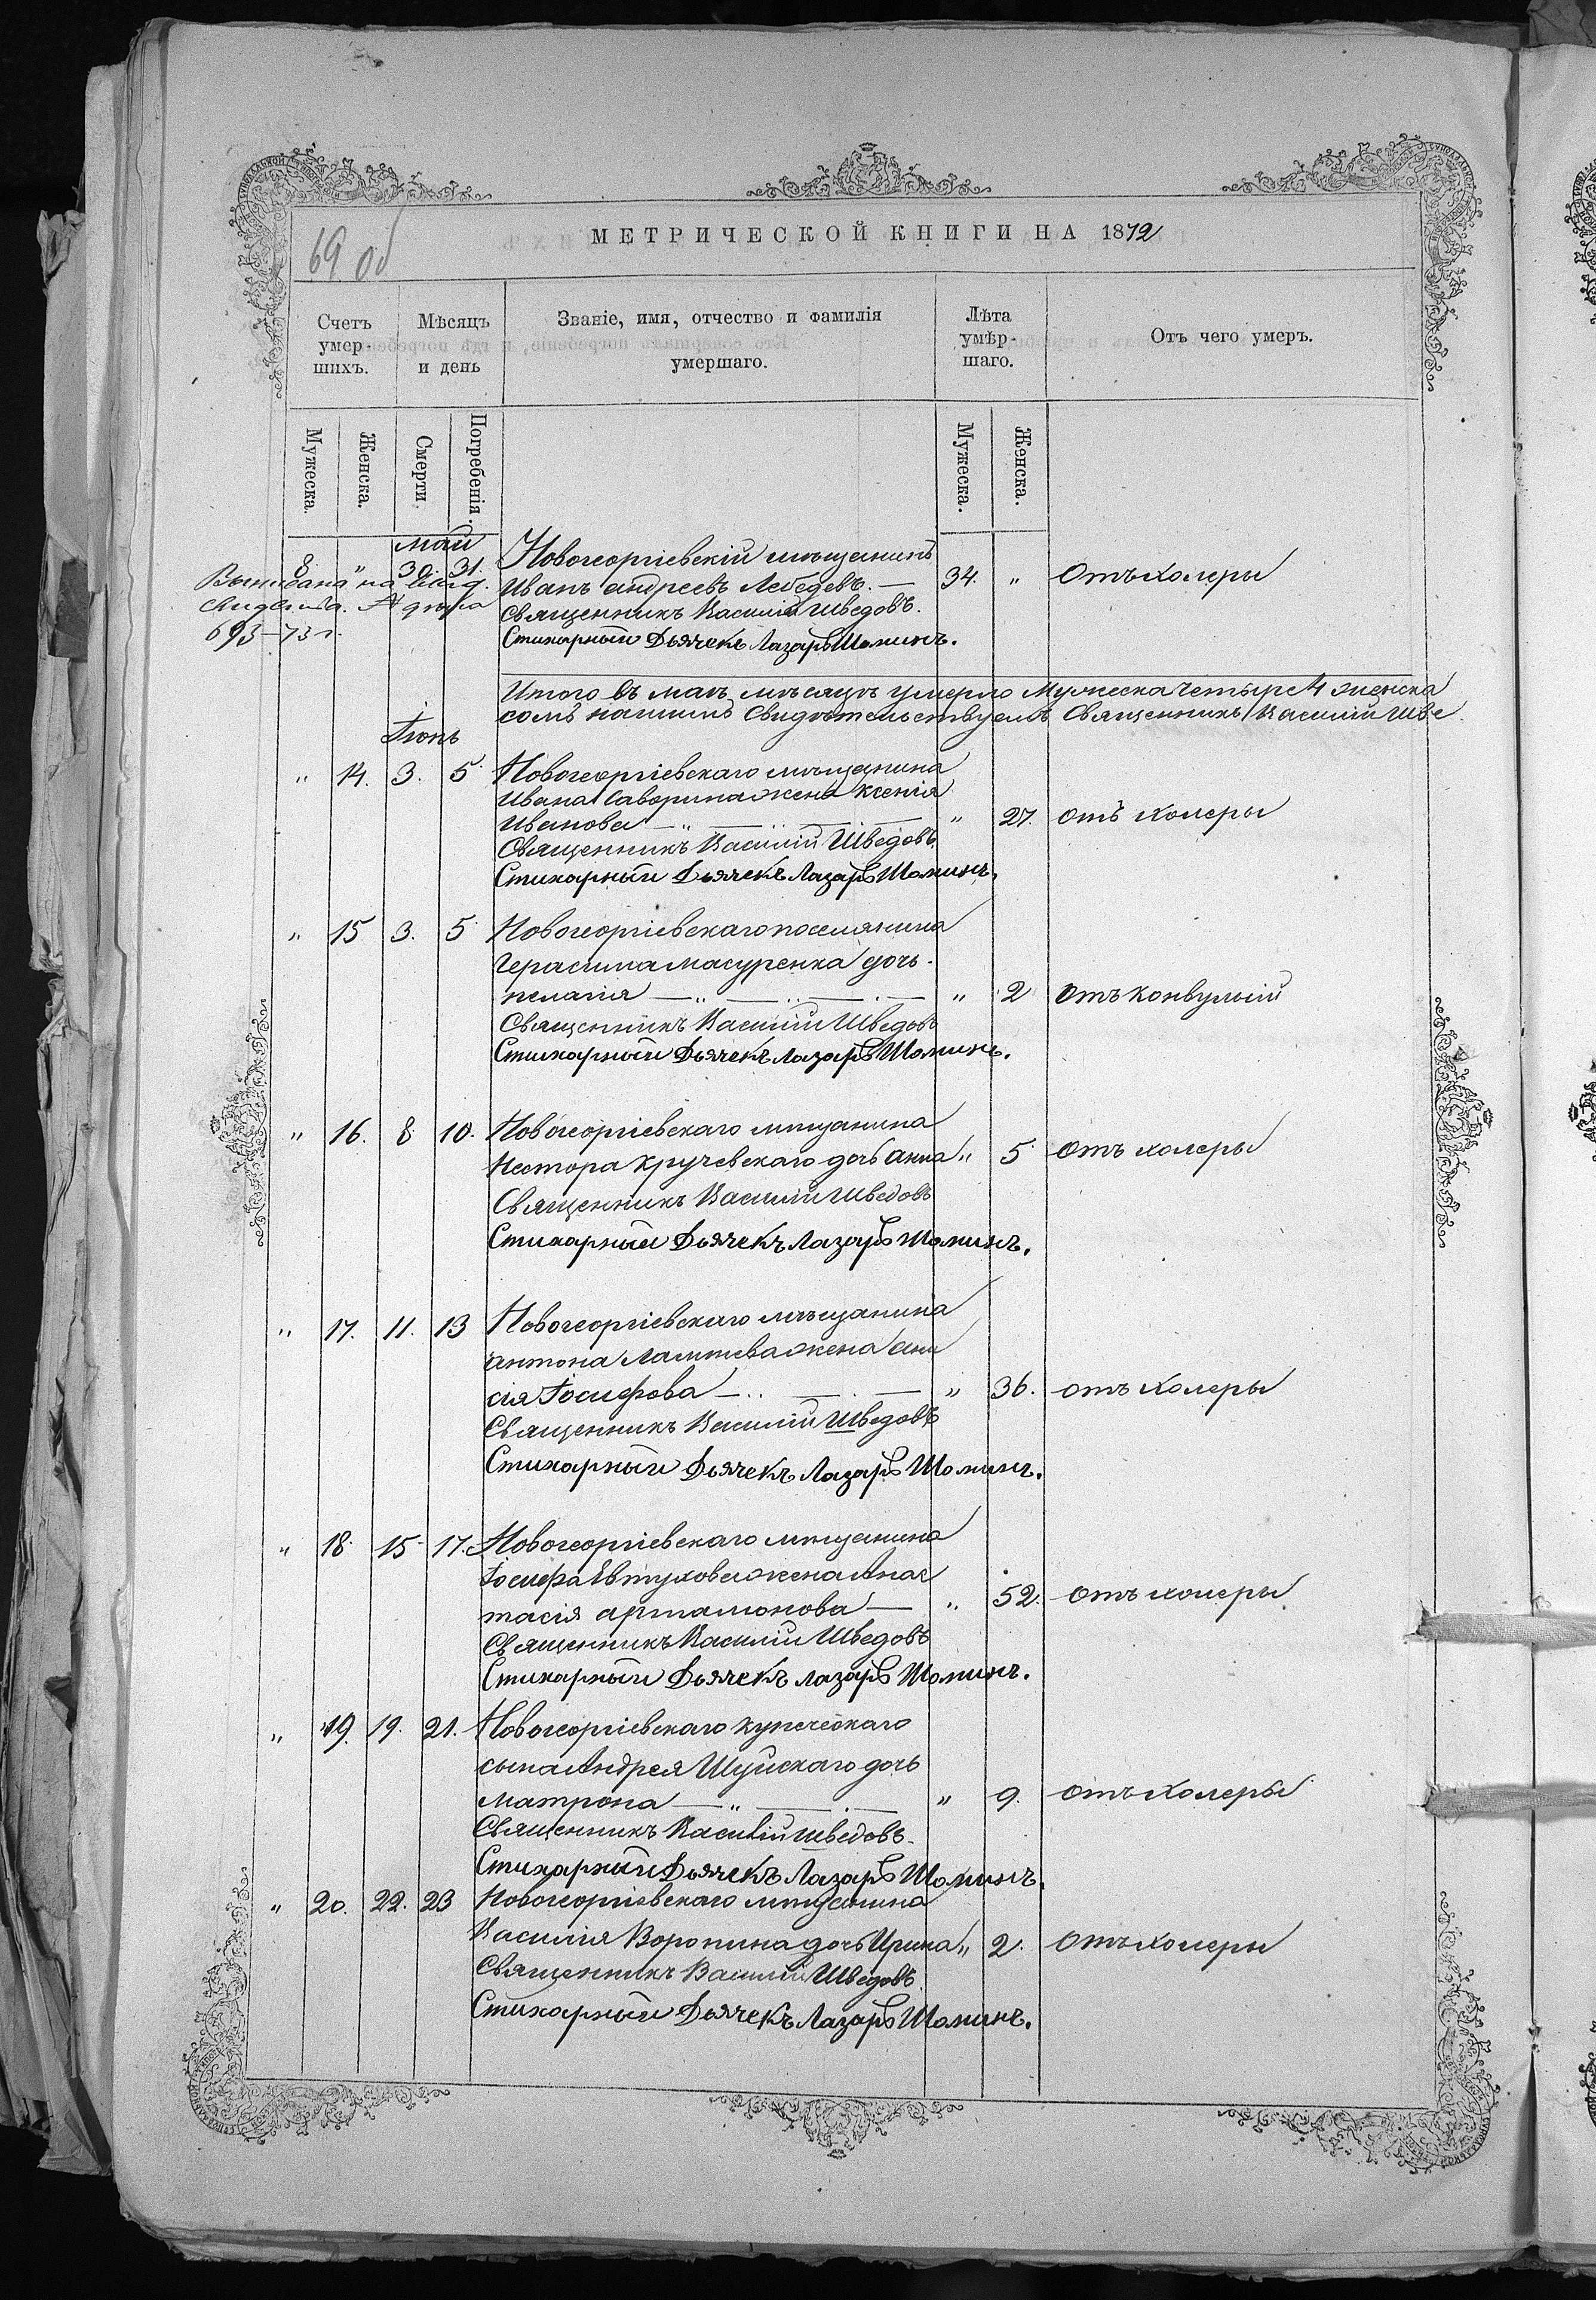 69 об
МЕТРИЧЕСКОЙ КНИГИ НА 1872
Счетъ умер-шихъ.
Мѣсяцъ и день
Званіе, имя, отчество и фамилія умершаго.
Лѣта умѣр-шаго.
Отъ чего умеръ.
Мужеска.
Женска.
Смерти.
Погребенія.
Мужеска.
Женска.
май
8 " 30. 31. Новогеоргіевскій мѣщанинъ
Иванъ Андреевъ Лебедевъ. — 34. " Отъ холеры
Священникъ Василій Шведовъ.
Стихарный Дьячекъ Лазарь Шоминъ.
693–73 г.
Итого въ маѣ мѣсяцѣ умерло Мужеска четыре 4 женска
Свидѣтельствуемъ Священникъ Василій Шве
Іюнь
" 14. 3. 5. Новогеоргіевскаго мѣщанина
Ивана Саворина жена Ксенія
Иванова — " — " 27. отъ холеры
Священникъ Василій Шведовъ
Стихарный Дьячекъ Лазарь Шоминъ.
" 15 3. 5 Новогеоргіевскаго поселянина
Герасима Масуренка дочь
пелагія — " — " 2 Отъ конвульсій
Священникъ Василій Шведовъ
Стихарный Дьячекъ Лазарь Шоминъ.
" 16. 8. 10. Новогеоргіевскаго мѣщанина
Нестора Кручевскаго дочь анна " 5. Отъ холеры
Священникъ Василій Шведовъ
Стихарный Дьячекъ Лазарь Шоминъ.
" 17. 11. 13 Новогеоргіевскаго мѣщанина
антона Лаптева жена ани
сія Іосифова — " — " 36. отъ Холеры
Священникъ Василій Шведовъ
Стихарный Дьячекъ Лазарь Шоминъ.
" 18. 15 17. Новогеоргіевскаго мѣщанина
Іосифа Евтухова жена Анас
тасія артамонова — " 52. Отъ холеры
Священникъ Василій Шведовъ
Стихарный Дьячекъ Лазарь Шоминъ.
" 19. 19. 21. Новогеоргіевскаго купеческаго
сына Андрея Шуйскаго дочь
матрона — " — " 9. Отъ Холеры
Священникъ Василій Шведовъ.
Стихарный Дьячекъ Лазарь Шоминъ.
" 20. 22. 23 Новогеоргіевскаго мѣщанина
Василія Воронина дочь Ирина " 2. Отъ холеры
Священникъ Василій Шведовъ
Стихарный Дьячекъ Лазарь Шоминъ.